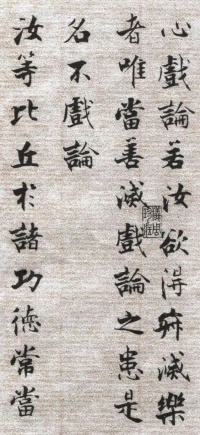 心戲論若汝欲得寂滅樂
者唯當善滅戲論之患是
名不戲論
汝等比丘於諸功德常當